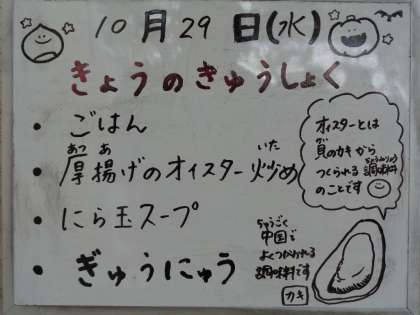 10月29日(水)
きょうのきゅうしょく
・ごはん
あつ あ いた
・厚揚げのオイスター炒め
・にら玉スープ
・ぎゅうにゅう
オイスターとは
貝のカキから
ちょうみりょう
つくられる調味料
のことです
ちゅうごく
中国で
よくつかわれる
調味料です
カキ